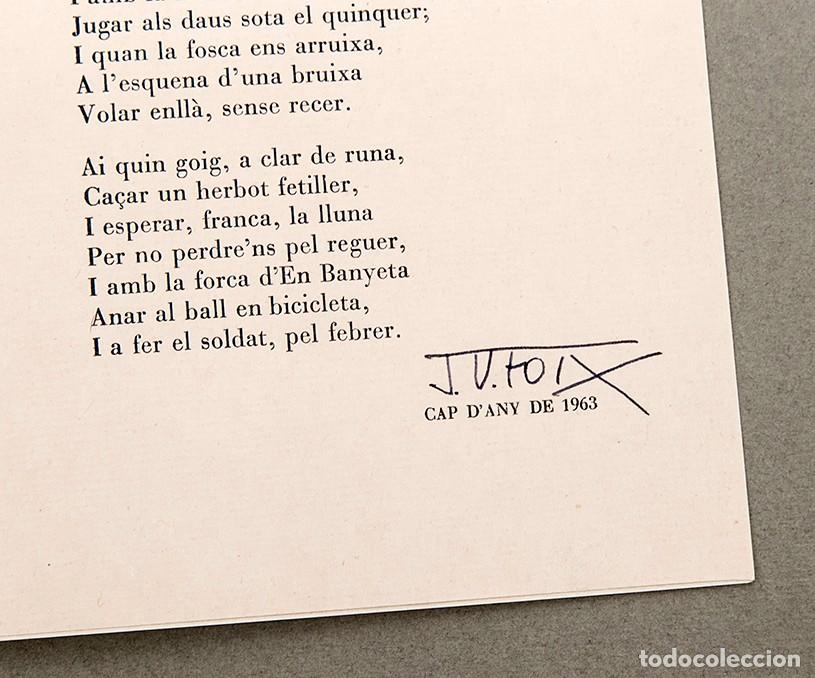 Jugar als daus sota el quinquer;
I quan la fosca ens arruixa,
A l'esquena d'una bruixa
Volar enllà, sense recer.
Ai quin goig, a clar de runa,
Caçar un herbot fetiller,
I esperar, franca, la lluna
Per no perdre'ns pel reguer,
I amb la forca d'En Banyeta
Anar al ball en bicicleta,
I a fer el soldat, pel febrer.
J. V. FOIX
CAP D'ANY DE 1963
todocoleccion